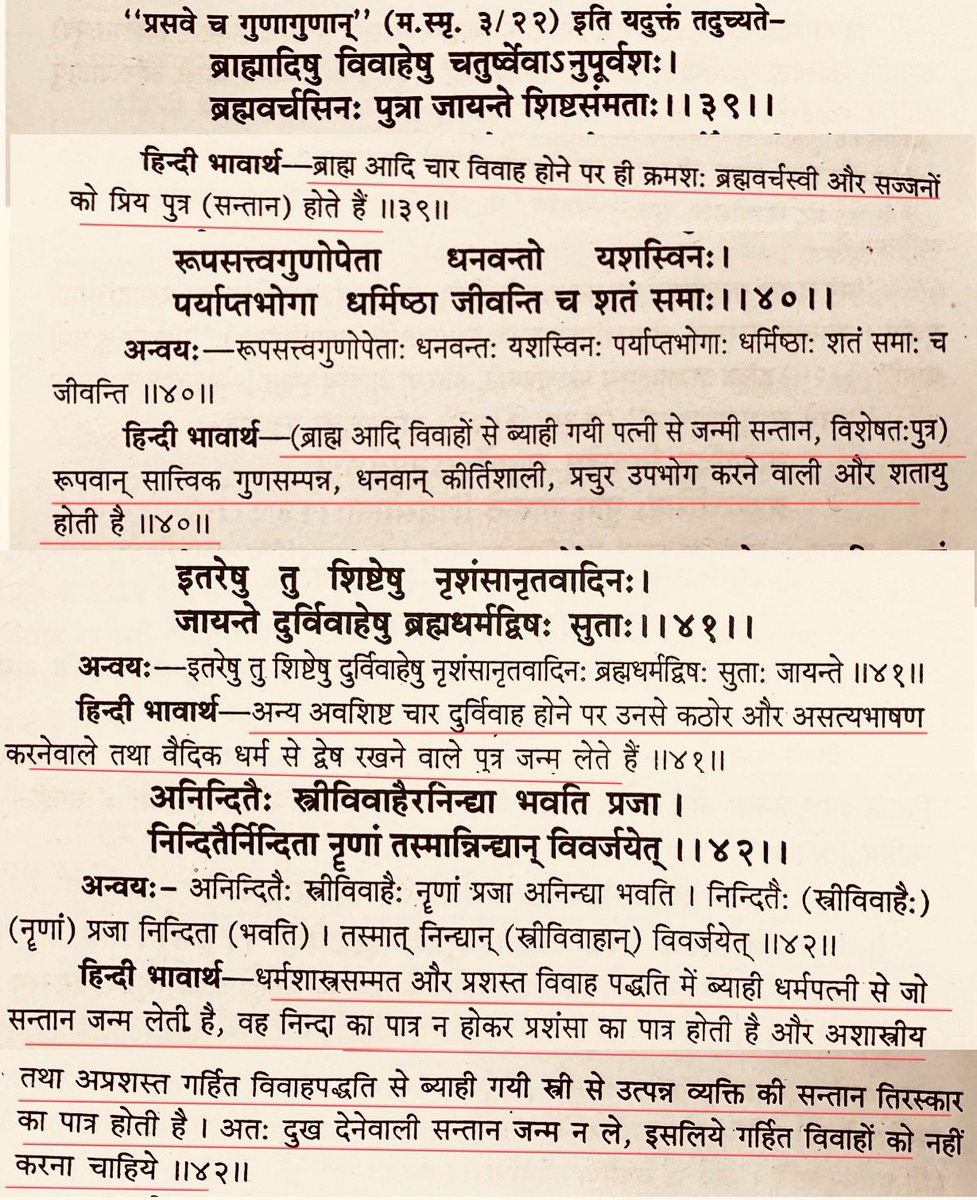 ‘‘प्रसवे च गुणागुणान्’’ (म.स्मृ. ३/२२) इति यदुक्तं तदुच्यते–
ब्राह्मादिषु विवाहेषु चतुर्ष्वेवाऽनुपूर्वशः।
ब्रह्मवर्चसिनः पुत्रा जायन्ते शिष्टसंमताः।।३९।।
हिन्दी भावार्थ—ब्राह्म आदि चार विवाह होने पर ही क्रमशः ब्रह्मवर्चस्वी और सज्जनों
को प्रिय पुत्र (सन्तान) होते हैं ॥३९॥
रूपसत्त्वगुणोपेता धनवन्तो यशस्विनः।
पर्याप्तभोगा धर्मिष्ठा जीवन्ति च शतं समाः।।४०।।
अन्वयः—रूपसत्त्वगुणोपेताः धनवन्तः यशस्विनः पर्याप्तभोगाः धर्मिष्ठाः शतं समाः च
जीवन्ति ॥४०॥
हिन्दी भावार्थ—(ब्राह्म आदि विवाहों से ब्याही गयी पत्नी से जन्मी सन्तान, विशेषतःपुत्र)
रूपवान् सात्त्विक गुणसम्पन्न, धनवान् कीर्तिशाली, प्रचुर उपभोग करने वाली और शतायु
होती है ॥४०॥
इतरेषु तु शिष्टेषु नृशंसानृतवादिनः।
जायन्ते दुर्विवाहेषु ब्रह्मधर्मद्विषः सुताः।।४१।।
अन्वयः—इतरेषु तु शिष्टेषु दुर्विवाहेषु नृशंसानृतवादिनः ब्रह्मधर्मद्विषः सुताः जायन्ते ॥४१॥
हिन्दी भावार्थ—अन्य अवशिष्ट चार दुर्विवाह होने पर उनसे कठोर और असत्यभाषण
करनेवाले तथा वैदिक धर्म से द्वेष रखने वाले पुत्र जन्म लेते हैं ॥४१॥
अनिन्दितैः स्त्रीविवाहैरनिन्द्या भवति प्रजा ।
निन्दितैर्निन्दिता नॄणां तस्मान्निन्द्यान् विवर्जयेत् ।।४२।।
अन्वयः– अनिन्दितैः स्त्रीविवाहैः नॄणां प्रजा अनिन्द्या भवति । निन्दितैः (स्त्रीविवाहैः)
(नॄणां) प्रजा निन्दिता (भवति) । तस्मात् निन्द्यान् (स्त्रीविवाहान्) विवर्जयेत् ॥४२॥
हिन्दी भावार्थ—धर्मशास्त्रसम्मत और प्रशस्त विवाह पद्धति में ब्याही धर्मपत्नी से जो
सन्तान जन्म लेती है, वह निन्दा का पात्र न होकर प्रशंसा का पात्र होती है और अशास्त्रीय
तथा अप्रशस्त गर्हित विवाहपद्धति से ब्याही गयी स्त्री से उत्पन्न व्यक्ति की सन्तान तिरस्कार
का पात्र होती है । अतः दुख देनेवाली सन्तान जन्म न ले, इसलिये गर्हित विवाहों को नहीं
करना चाहिये ॥४२॥